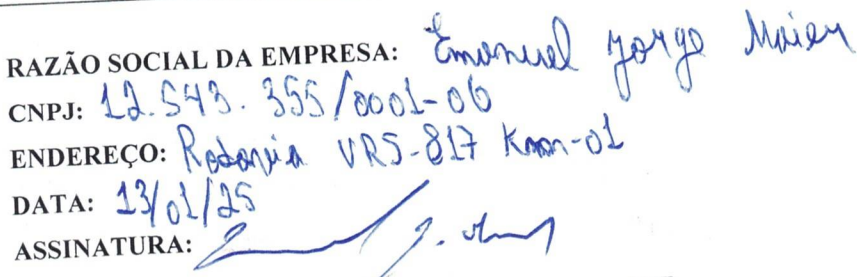 RAZÃO SOCIAL DA EMPRESA: Emanuel Jorge Maier
CNPJ: 12.543.355/0001-06
ENDEREÇO: Rodovia VRS-817 Km-01
DATA: 13/01/25
ASSINATURA: